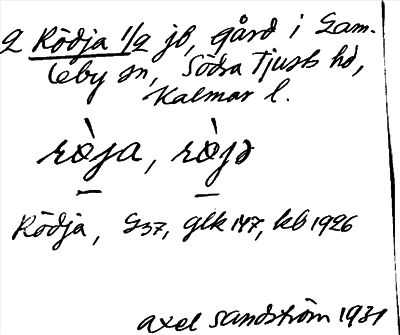 2 Rödja 1/2 jb, gård i Gam-
leby sn, Södra Tjusts hd,
Kalmar l.
rö̀ja, rö̀jə
Rödja, G37, glk 147, kb 1926
Axel Sandström 1931